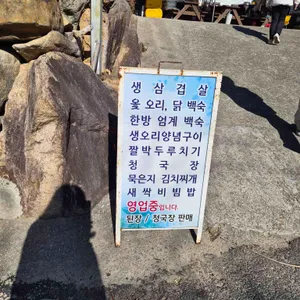 생삼겹살
옻 오리, 닭 백숙
한방 엄계 백숙
생오리양념구이
짤박두루치기
청국장
묵은지 김치찌개
새싹비빔밥
영업중입니다.
된장 / 청국장 판매